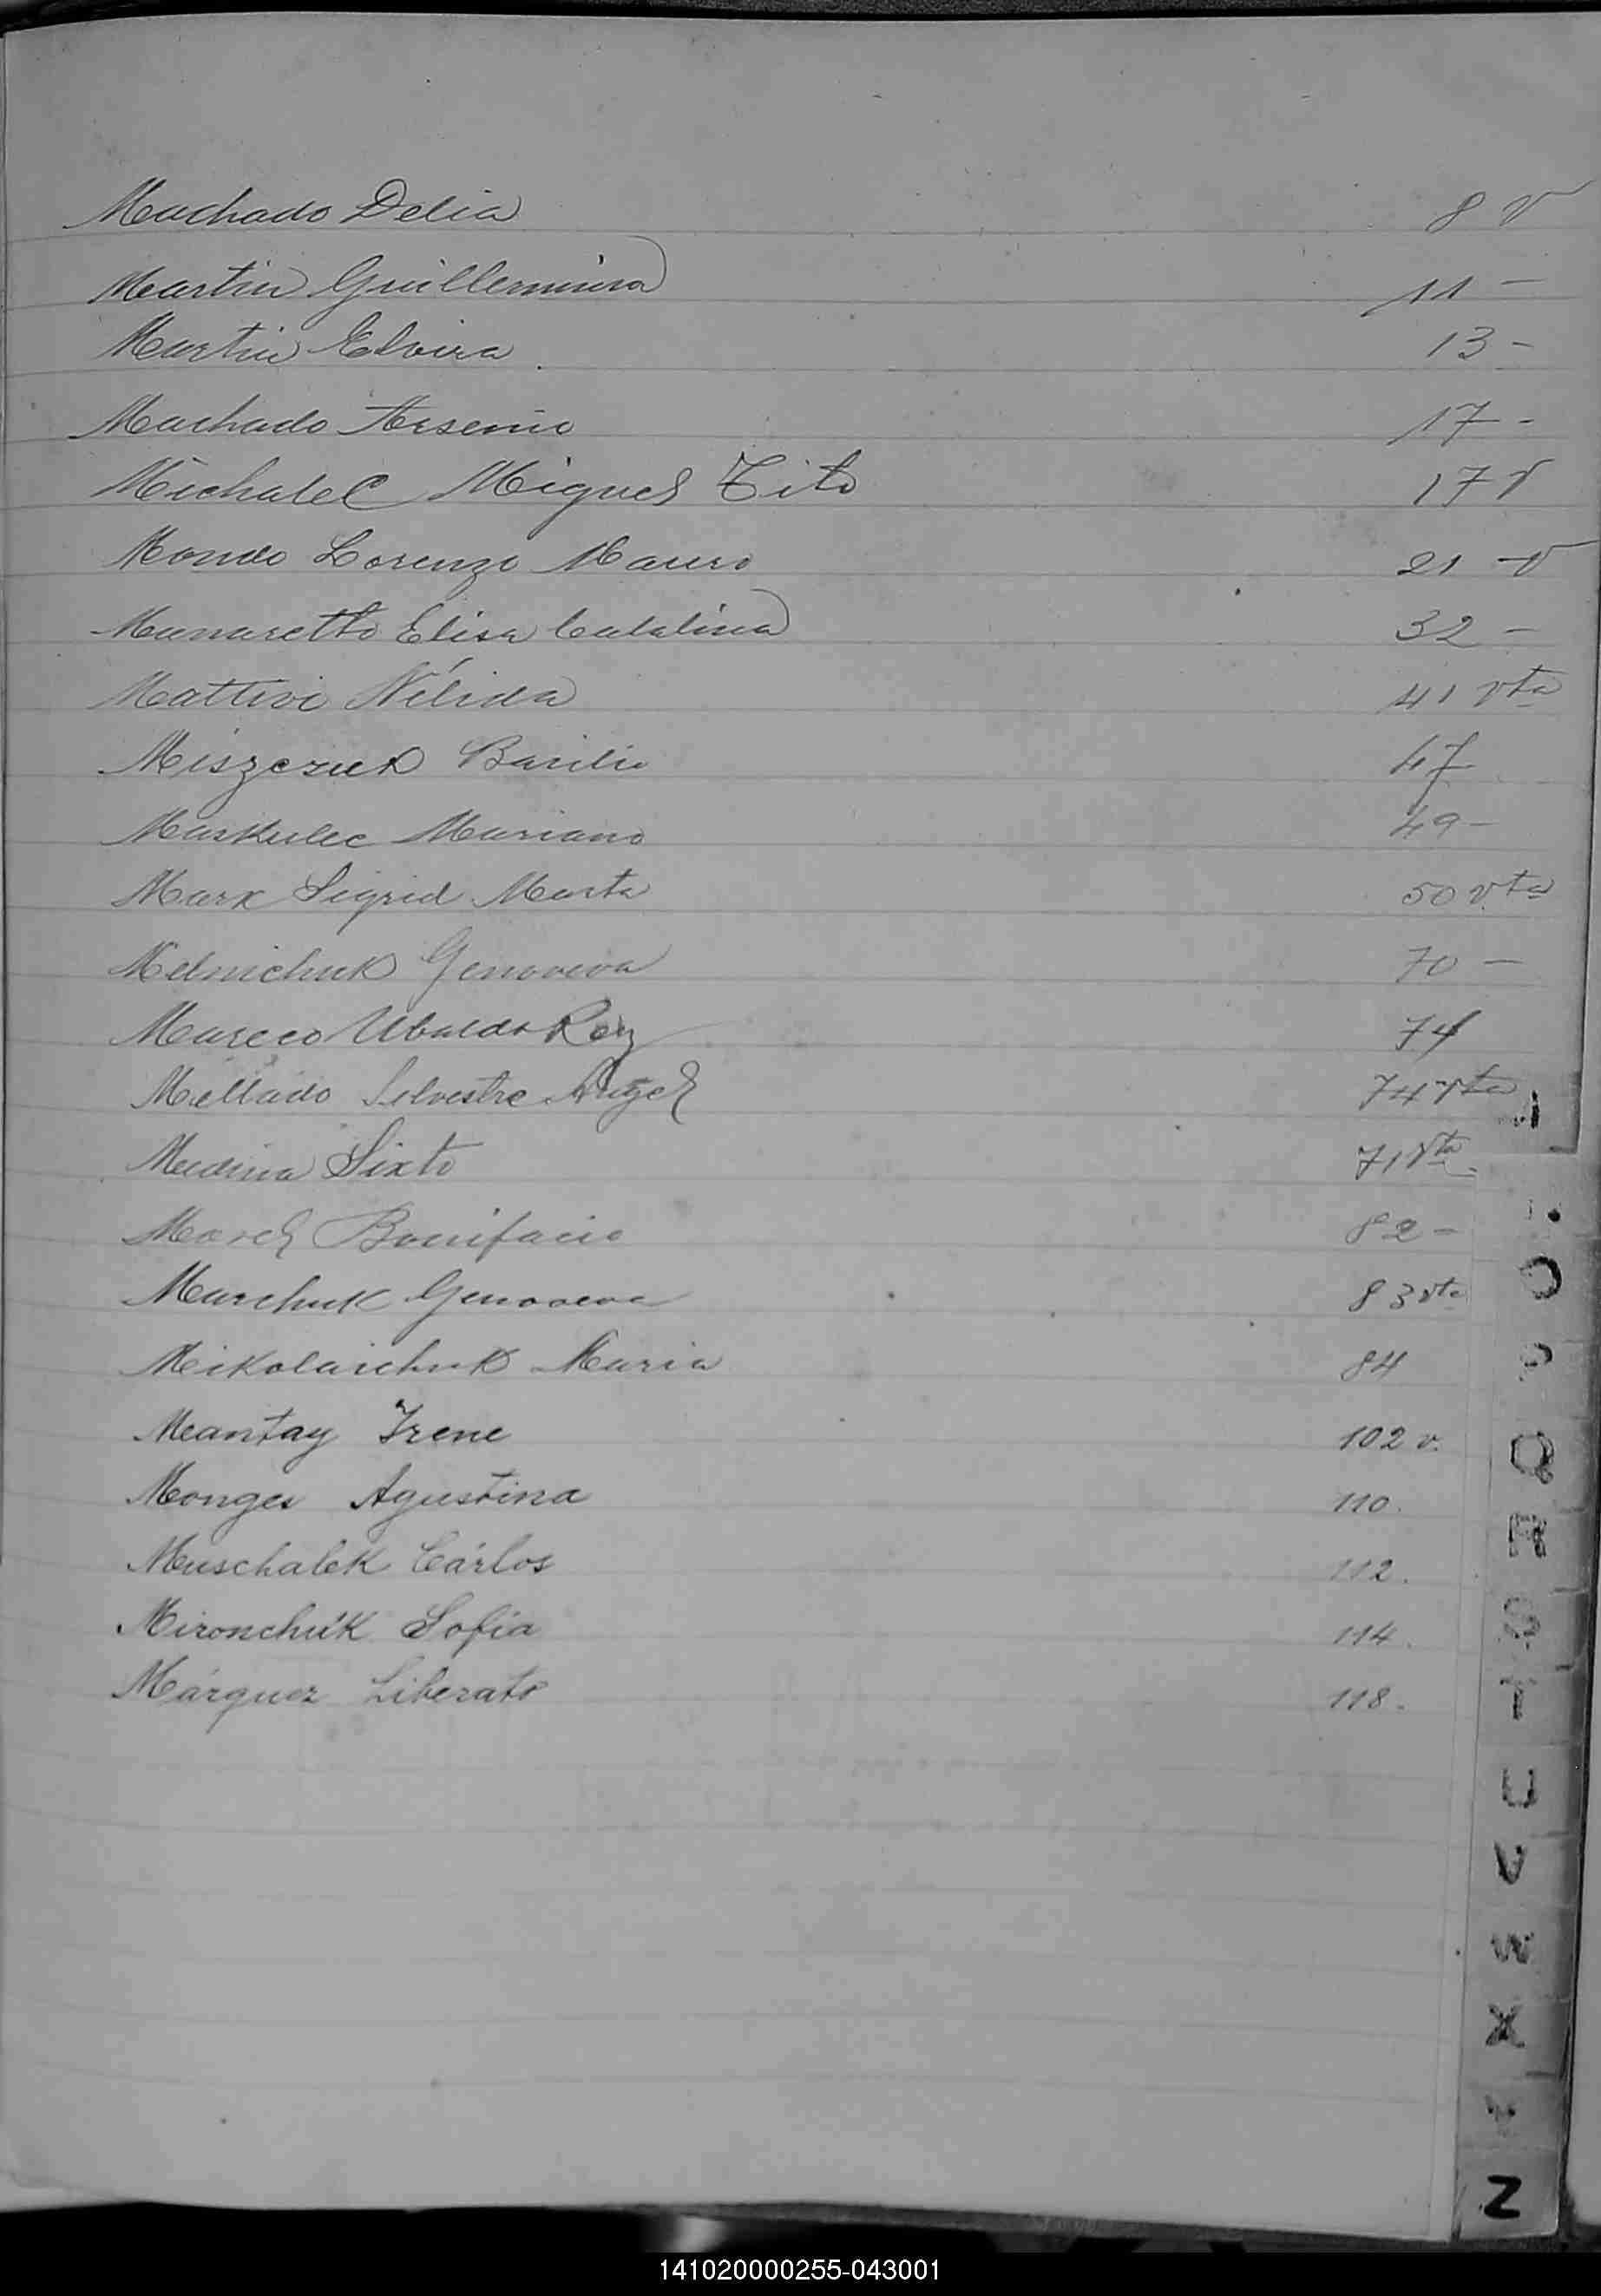 Machado Delia 8 v
Martin Guillermina 11 -
Martin Elvira 13 -
Machado Arsenio 17 -
Michalec Miguel Tito 17 v
Mondo Lorenzo Mauro 21 v
Munaretto Elisa Catalina 32 -
Mattivi Nélida 41 vta
Miszczuk Basilio 47
Maskulec Mariano 49 -
Marx Sigrid Marta 50 vta
Melnichuk Genoveva 70 -
Mareco Ubaldo Rey 74
Mellado Silvestre Angel 74 vta
Medina Sixto 71 vta
Bonifacio 82 -
Marchuk Genoveva 83 vta
Mikolaichuk Maria 84
Mantay Irene 102 v.
Monges Agustina 110.
Muschalek Cárlos 112.
Mironchuk Sofia 114.
Márquez Liberato 118.
O
P
Q
R
S
T
U
V
W
X
Y
Z
141020000255-043001